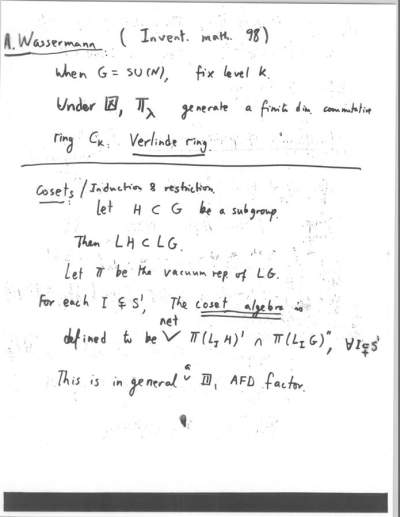 A. Wassermann (Invent. math. 98)
When G = SU(N), fix level k.
Under ⊠, π_λ generate a finite dim. commutative
ring C_k. Verlinde ring.
Cosets / Induction & restriction.
Let H ⊂ G be a subgroup.
Then LH ⊂ LG.
Let π be the vacuum rep of LG.
For each I ⊊ S¹, The coset algebra is
net
defined to be ✓ π(L_I H)' ∩ π(L_I G)'', ∀ I ⊊ S¹
a
This is in general ✓ III₁ AFD factor.